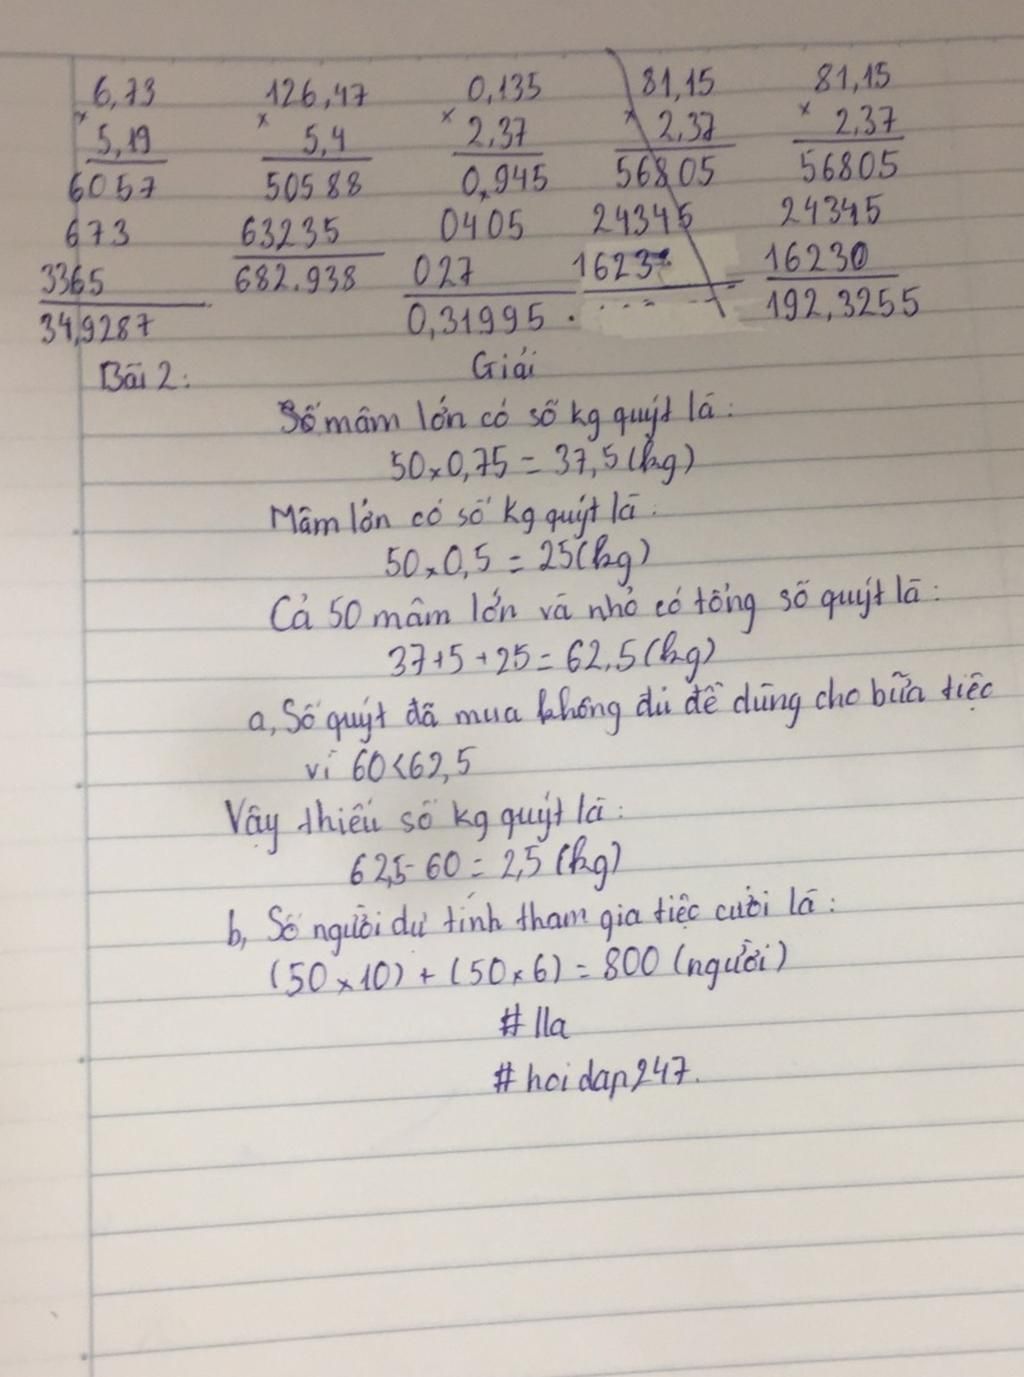 6,73 126,47 0,135 81,15 81,15
× 5,19 × 5,4 × 2,37 × 2,37 × 2,37
6057 50588 0,945 56805 56805
673 63235 0405 24345 24345
3365 682.938 027 1623 16230
34,9287 0,31995 . 192,3255
Bài 2: Giải
Số mâm lớn có số kg quýt là:
50 × 0,75 = 37,5 (kg)
Mâm lớn có số kg quýt là:
50 × 0,5 = 25 (kg)
Cả 50 mâm lớn và nhỏ có tổng số quýt là:
37+5 + 25 = 62,5 (kg)
a, Số quýt đã mua không đủ để dùng cho bữa tiệc
vì 60 < 62,5
Vậy thiếu số kg quýt là:
62,5 - 60 = 2,5 (kg)
b, Số người dự tính tham gia tiệc cưới là:
(50 × 10) + (50 × 6) = 800 (người)
# lla
# hoidap247.